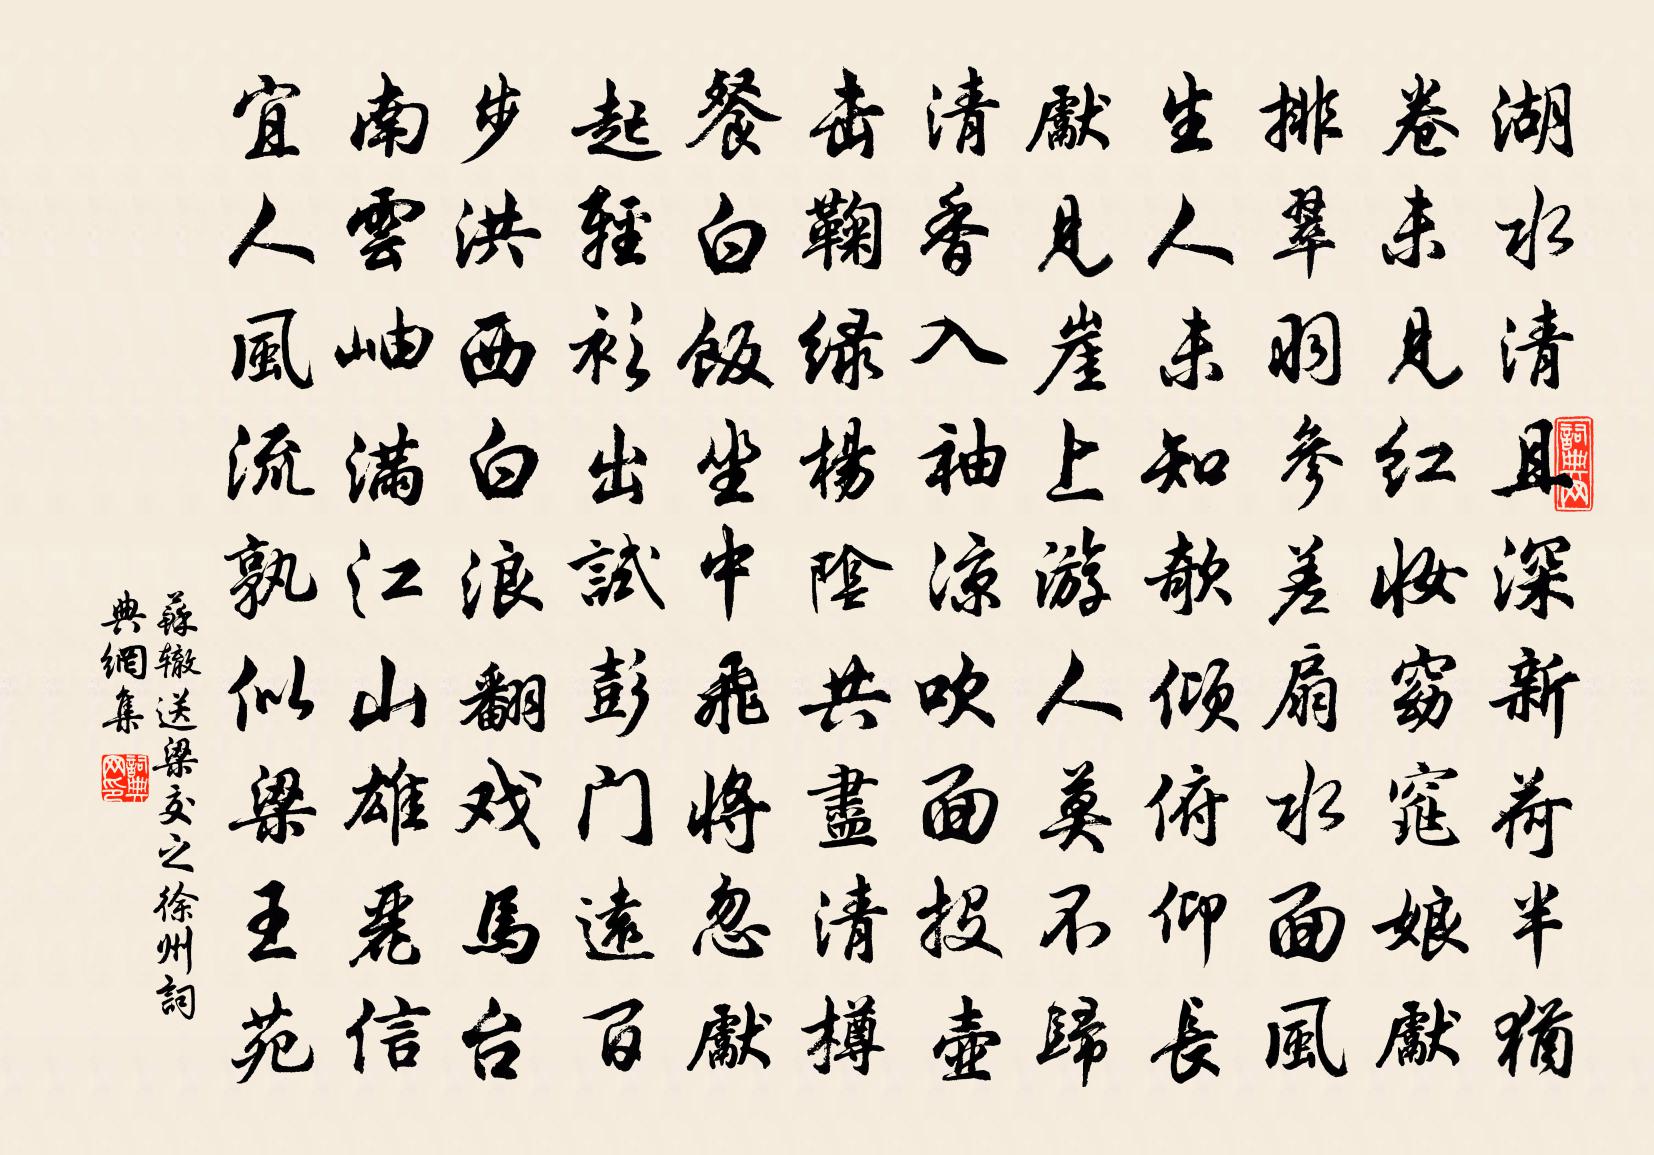 湖水清且深新荷半猶
卷未见红妆窈窕娘獻
排翠羽参差扇水面風
生人未知欹倾俯仰長
獻见崖上游人莫不歸
清香入袖凉吹面投壺
击鞠绿楊陰共盡清樽
餐白飯坐中飛将忽獻
起輕衫出試彭门遠百
步洪西白浪翻戏馬台
南雲岫满江山雄麗信
宜人風流孰似梁王苑
蘇辙送梁交之徐州詞
典網集
詞典网
詞典网印